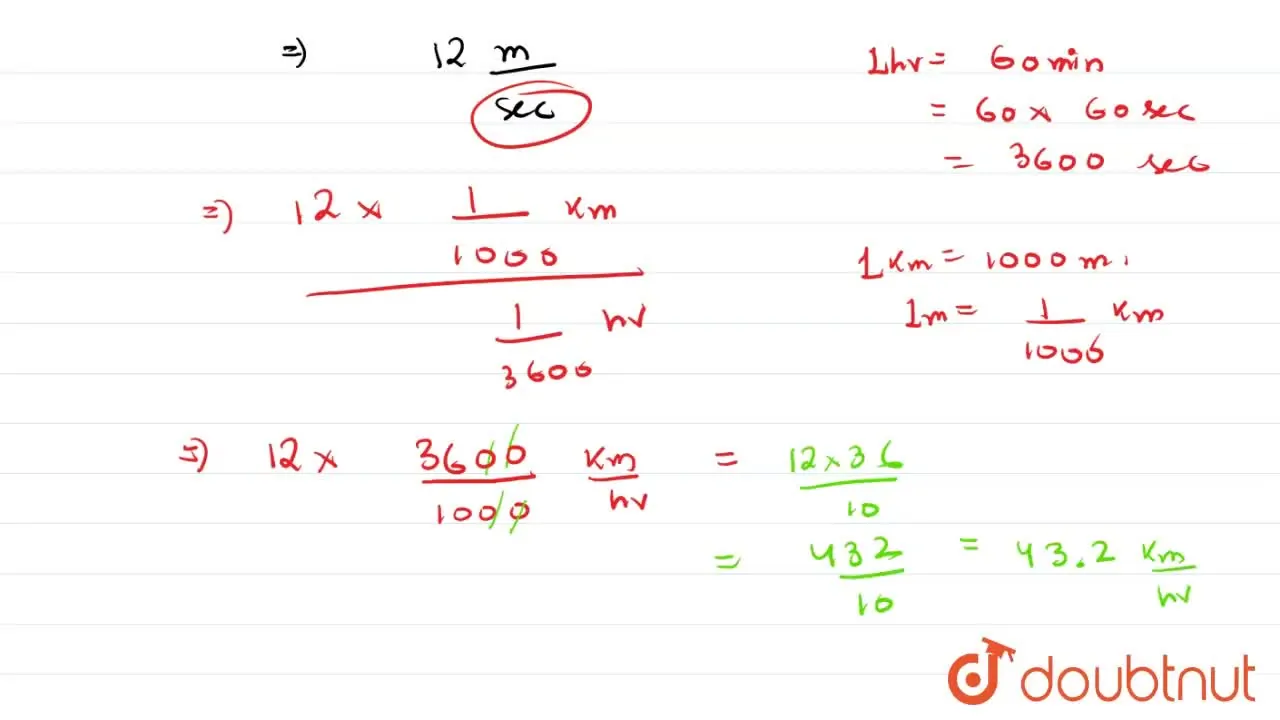 ⇒ 12 m/sec
1hr = 60 min
= 60 × 60 sec
= 3600 sec
⇒ 12 × 1/1000 Km
1/3600 hr
1 Km = 1000 m.
1m = 1/1000 Km
⇒ 12 × 3600/1000 Km/hr = 12×36/10
= 432/10 = 43.2 Km/hr
doubtnut